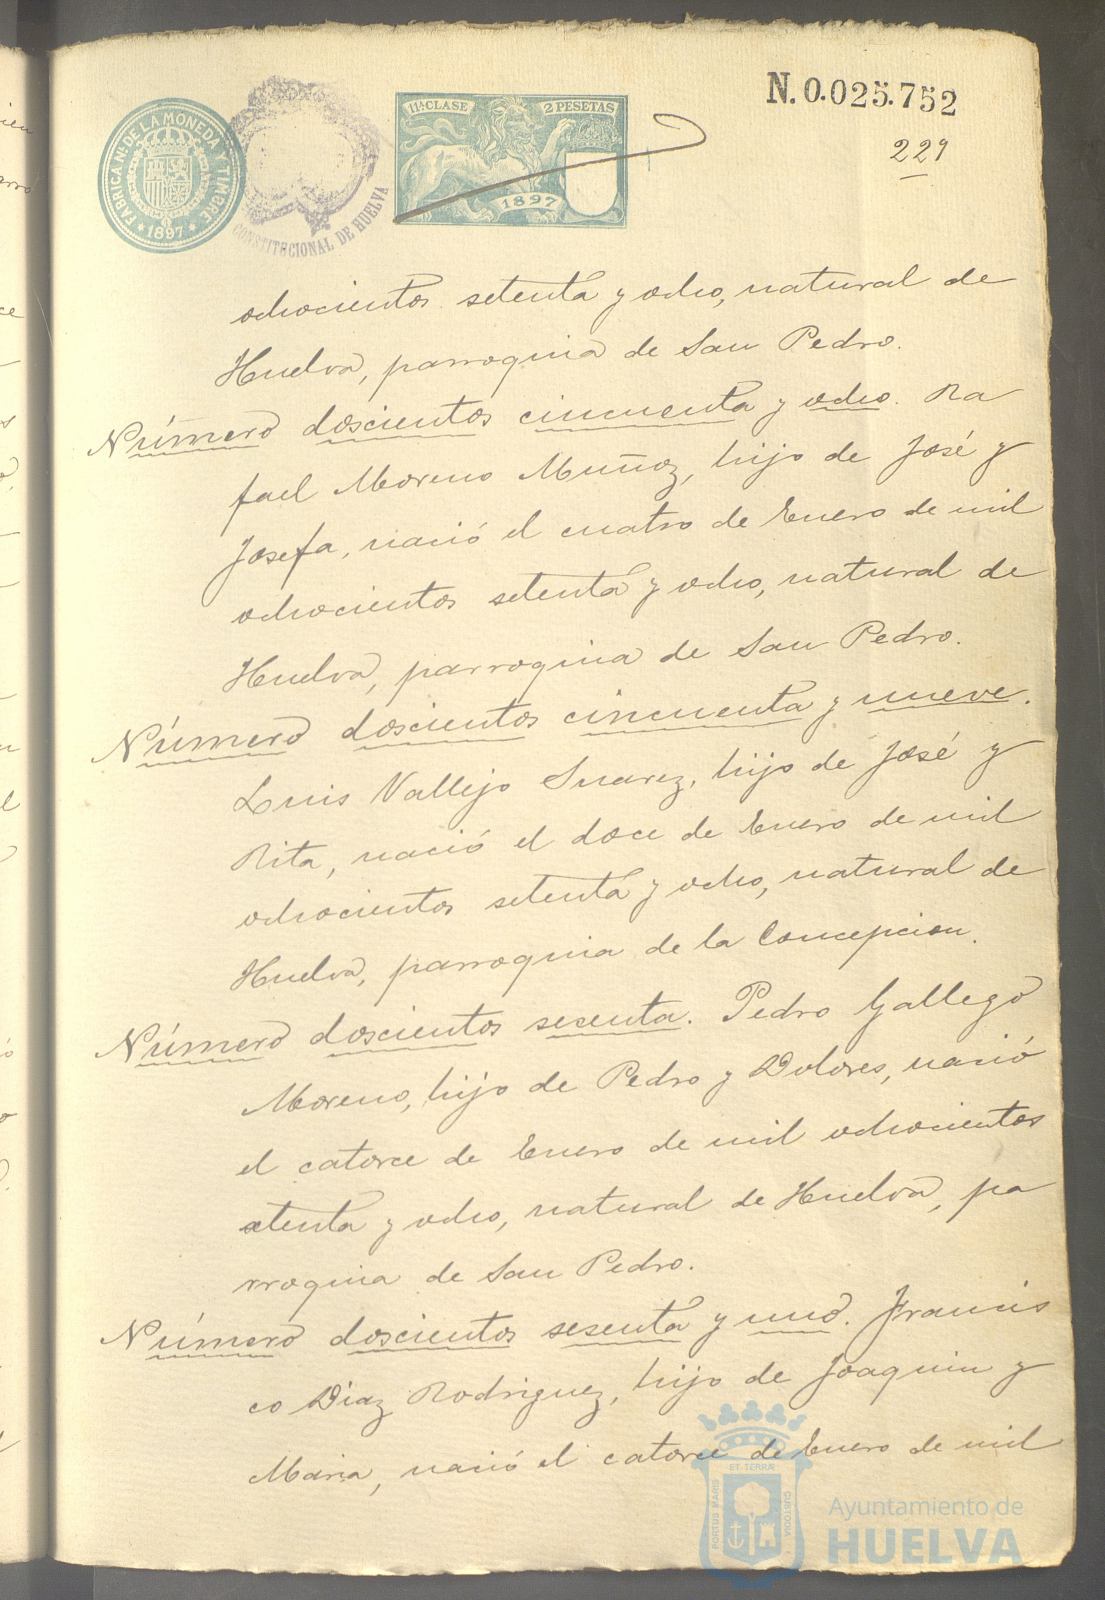 FÁBRICA Nal. DE LA MONEDA Y TIMBRE
* 1897 *
CONSTITUCIONAL DE HUELVA
11ª CLASE 2 PESETAS
1897
N. 0.025.752
229
ochocientos setenta y ocho, natural de
Huelva, parroquia de San Pedro.
Número doscientos cincuenta y ocho. Ra
fael Moreno Muñoz, hijo de José y
Josefa, nació el cuatro de Enero de mil
ochocientos setenta y ocho, natural de
Huelva, parroquia de San Pedro.
Número doscientos cincuenta y nueve.
Luis Vallejo Suarez, hijo de José y
Rita, nació el doce de Enero de mil
ochocientos setenta y ocho, natural de
Huelva, parroquia de la Concepcion.
Número doscientos sesenta. Pedro Gallego
Moreno, hijo de Pedro y Dolores, nació
el catorce de Enero de mil ochocientos
setenta y ocho, natural de Huelva, pa
rroquia de San Pedro.
Número doscientos sesenta y uno. Francis
co Díaz Rodriguez, hijo de Joaquin y
Maria, nació el catorce de Enero de mil
PORTUS MARIS ET TERRÆ CUSTODIA
Ayuntamiento de
HUELVA